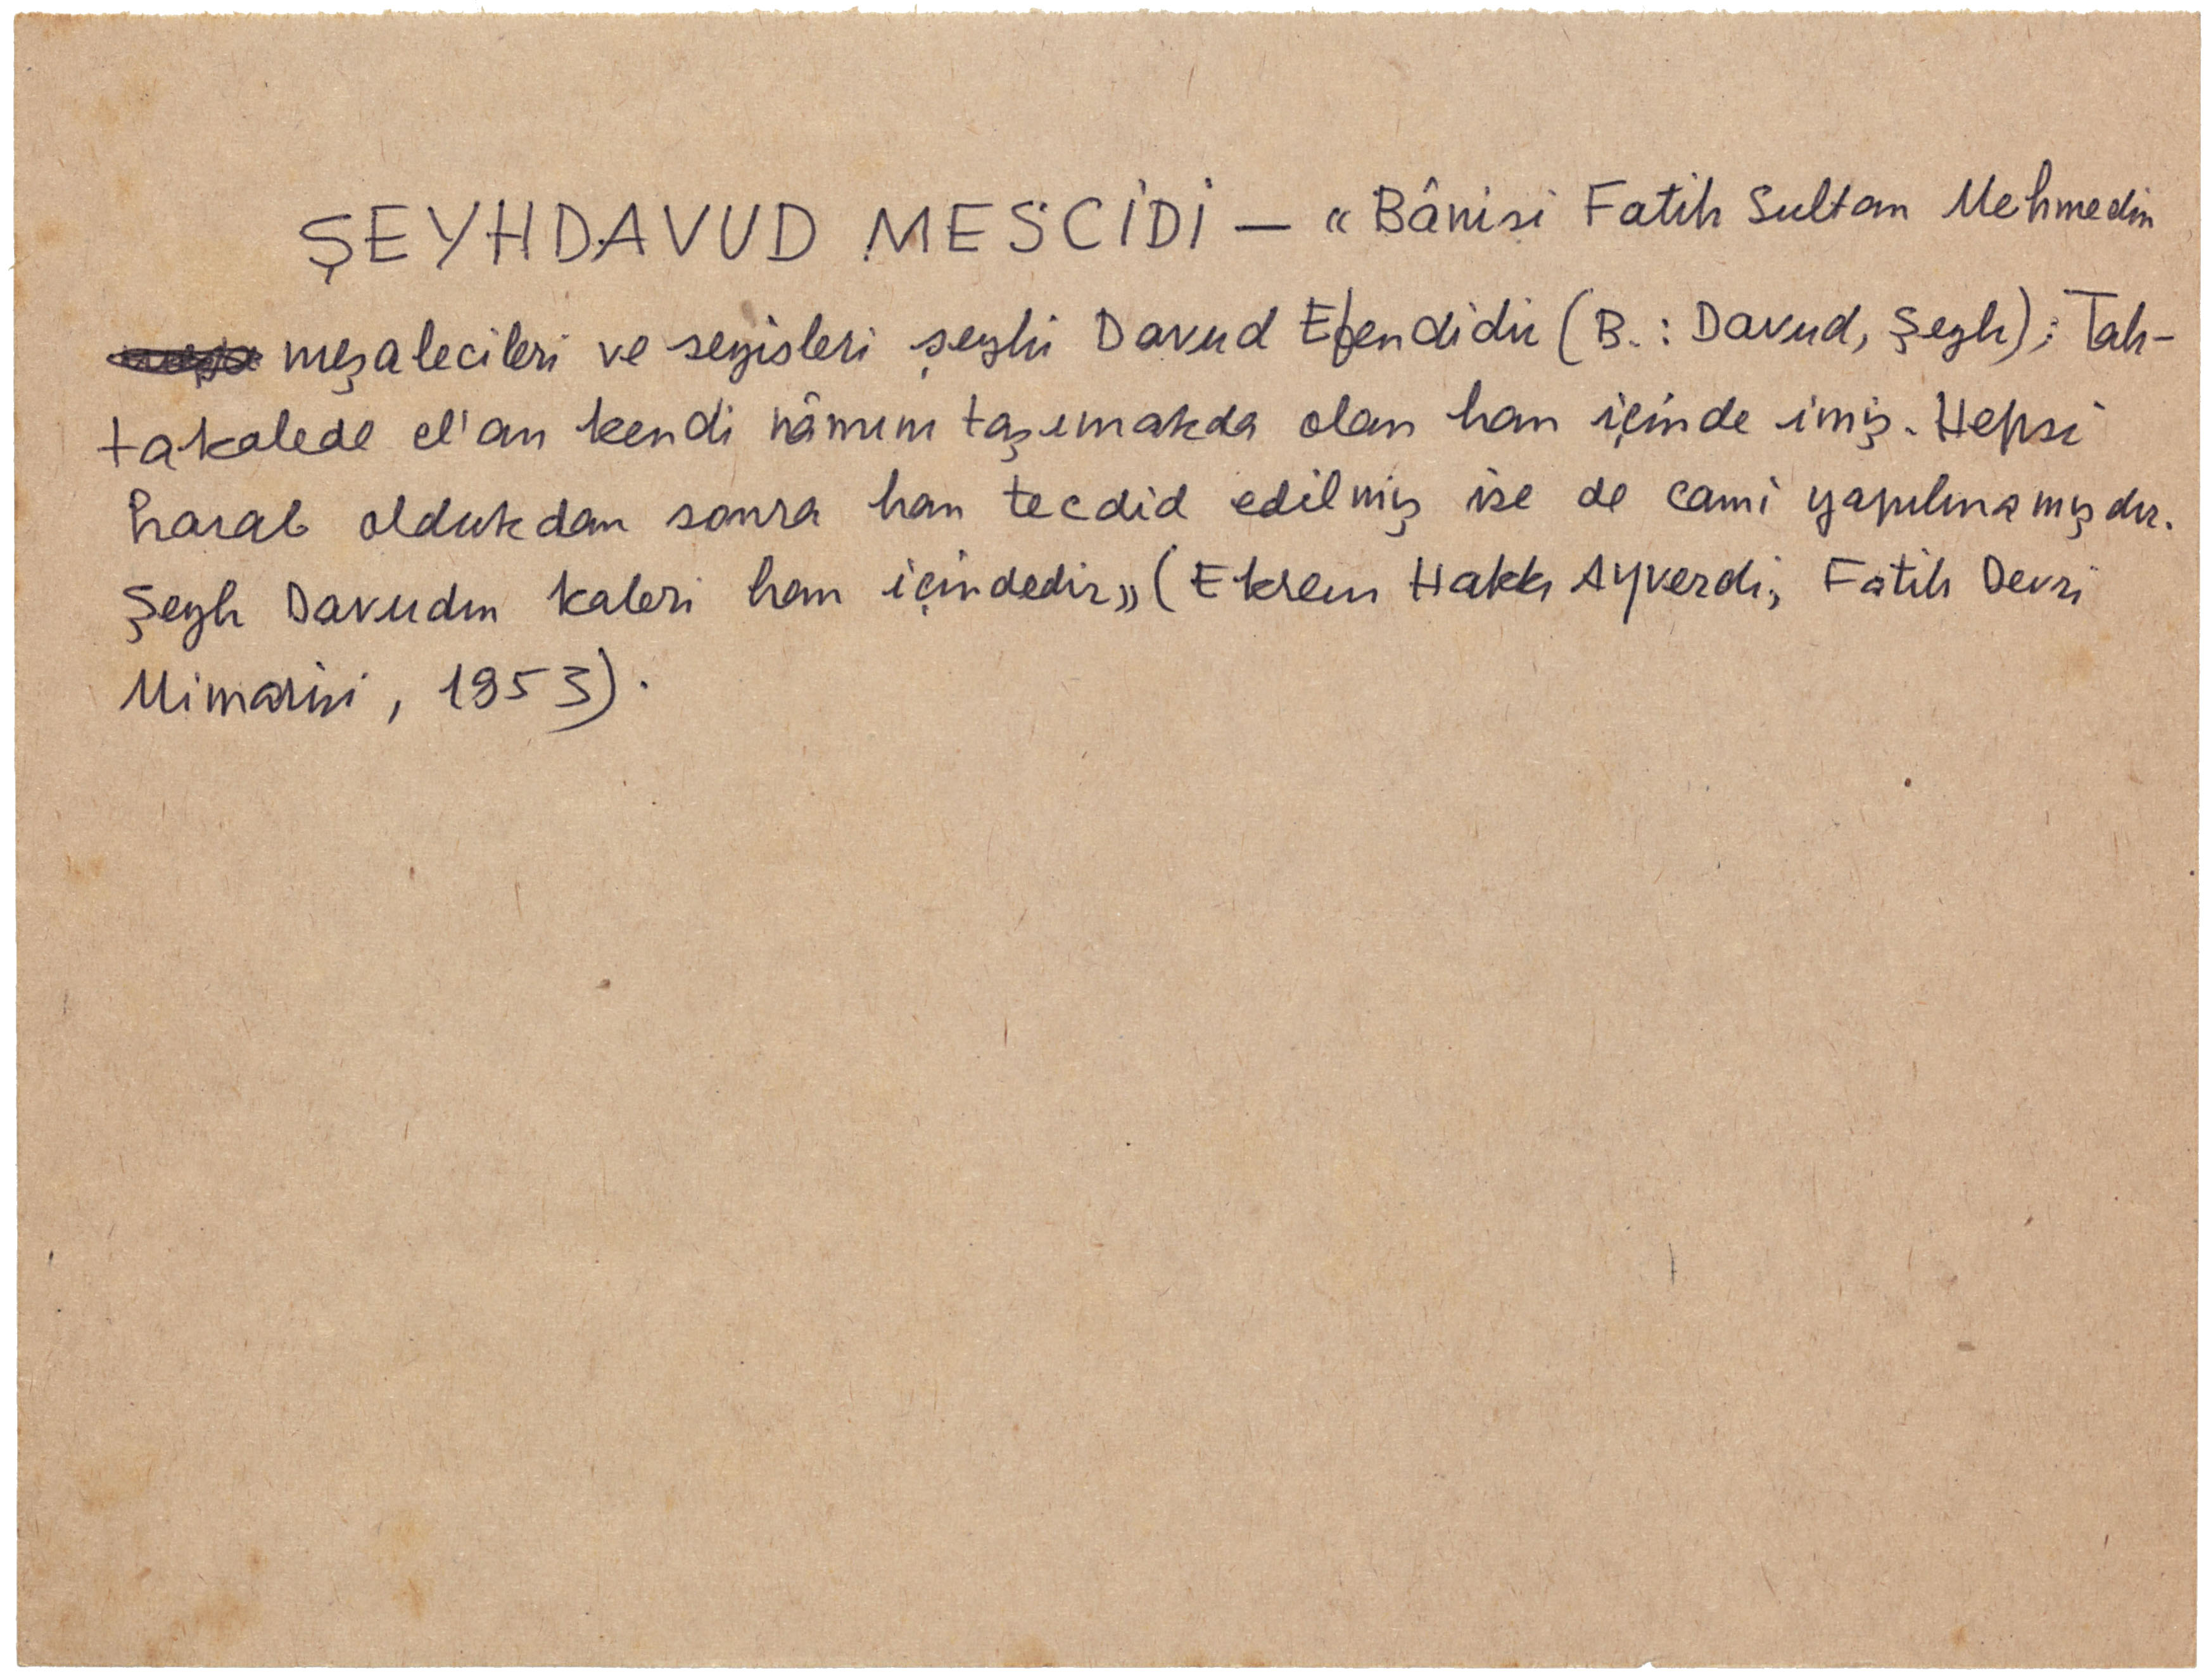 ŞEYHDAVUD MESCİDİ — «Bânisi Fatih Sultan Mehmedin
meşalecileri ve seyisleri şeyhi Davud Efendidir (B.: Davud, Şeyh); Tah-
takalede el'an kendi nâmını taşımakda olan han içinde imiş. Hepsi
harab oldukdan sonra han tecdid edilmiş ise de cami yapılmamışdır.
Şeyh Davudın kabri han içindedir» (Ekrem Hakkı Ayverdi, Fatih Devri
Mimarisi, 1953).